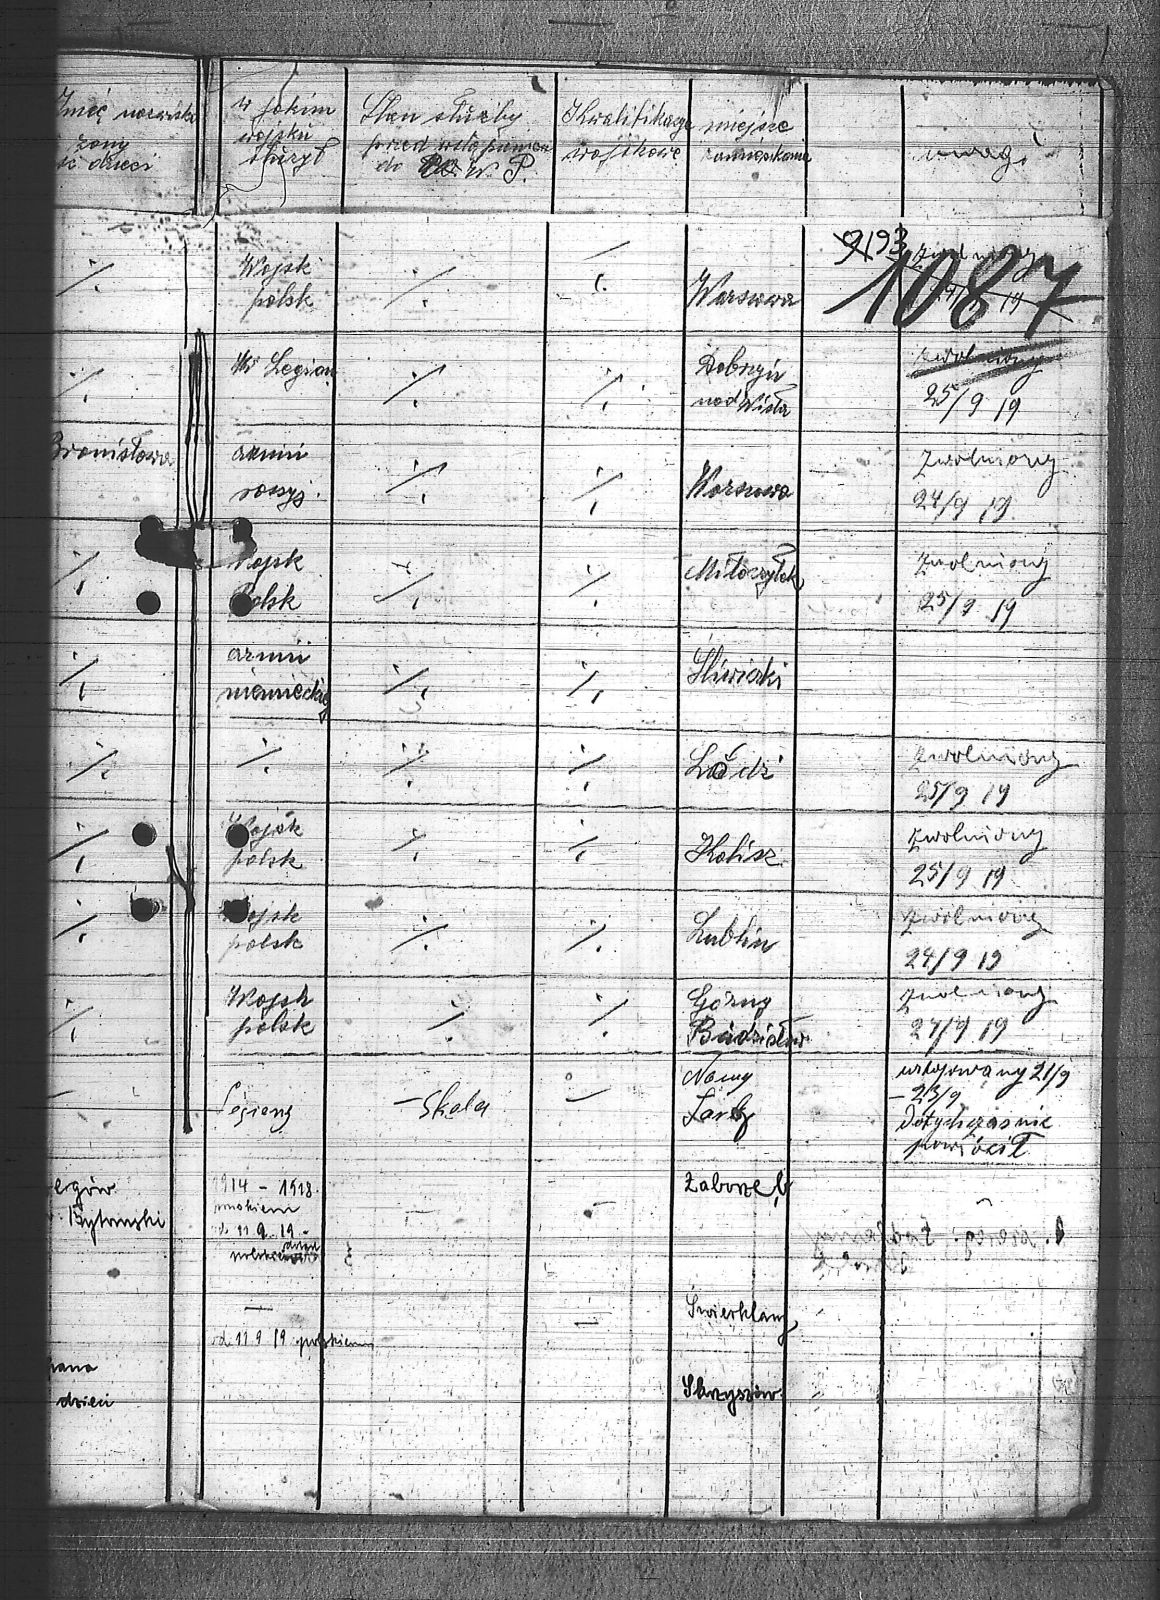 Imię nazwisko żony i dzieci
w jakim wojsku służył
Stan służby przed wstąpieniem do W. P.
Kwalifikacje wojskowe
miejsce zamieszkania
uwagi
9193
1087
Wojsk polsk
Warszawa
19
W Legion
Dobrzyń nad Wisłą
zwolniony 25/9 19
Bronisława
armii rossyj.
Warszawa
zwolniony 24/9 19
Wojsk Polsk
zwolniony 25/9 19
armii niemieckiej
Śliwiczki
Łódź
zwolniony 25/9 19
Wojsk polsk
Kalisz
zwolniony 25/9 19
Wojsk polsk
Lublin
zwolniony 24/9 19
Wojsk polsk
Górny
zwolniony 24/9 19
Legiony
Skala
Nowy Targ
urlopowany 21/9
– 23/9
dotychczas nie
powrócił
Bytomski
1914 – 1918.
od 11.9.19 –
Zaborze
od 11 9 19 polskiem
Świerklany
dzieci
Skrzyszów